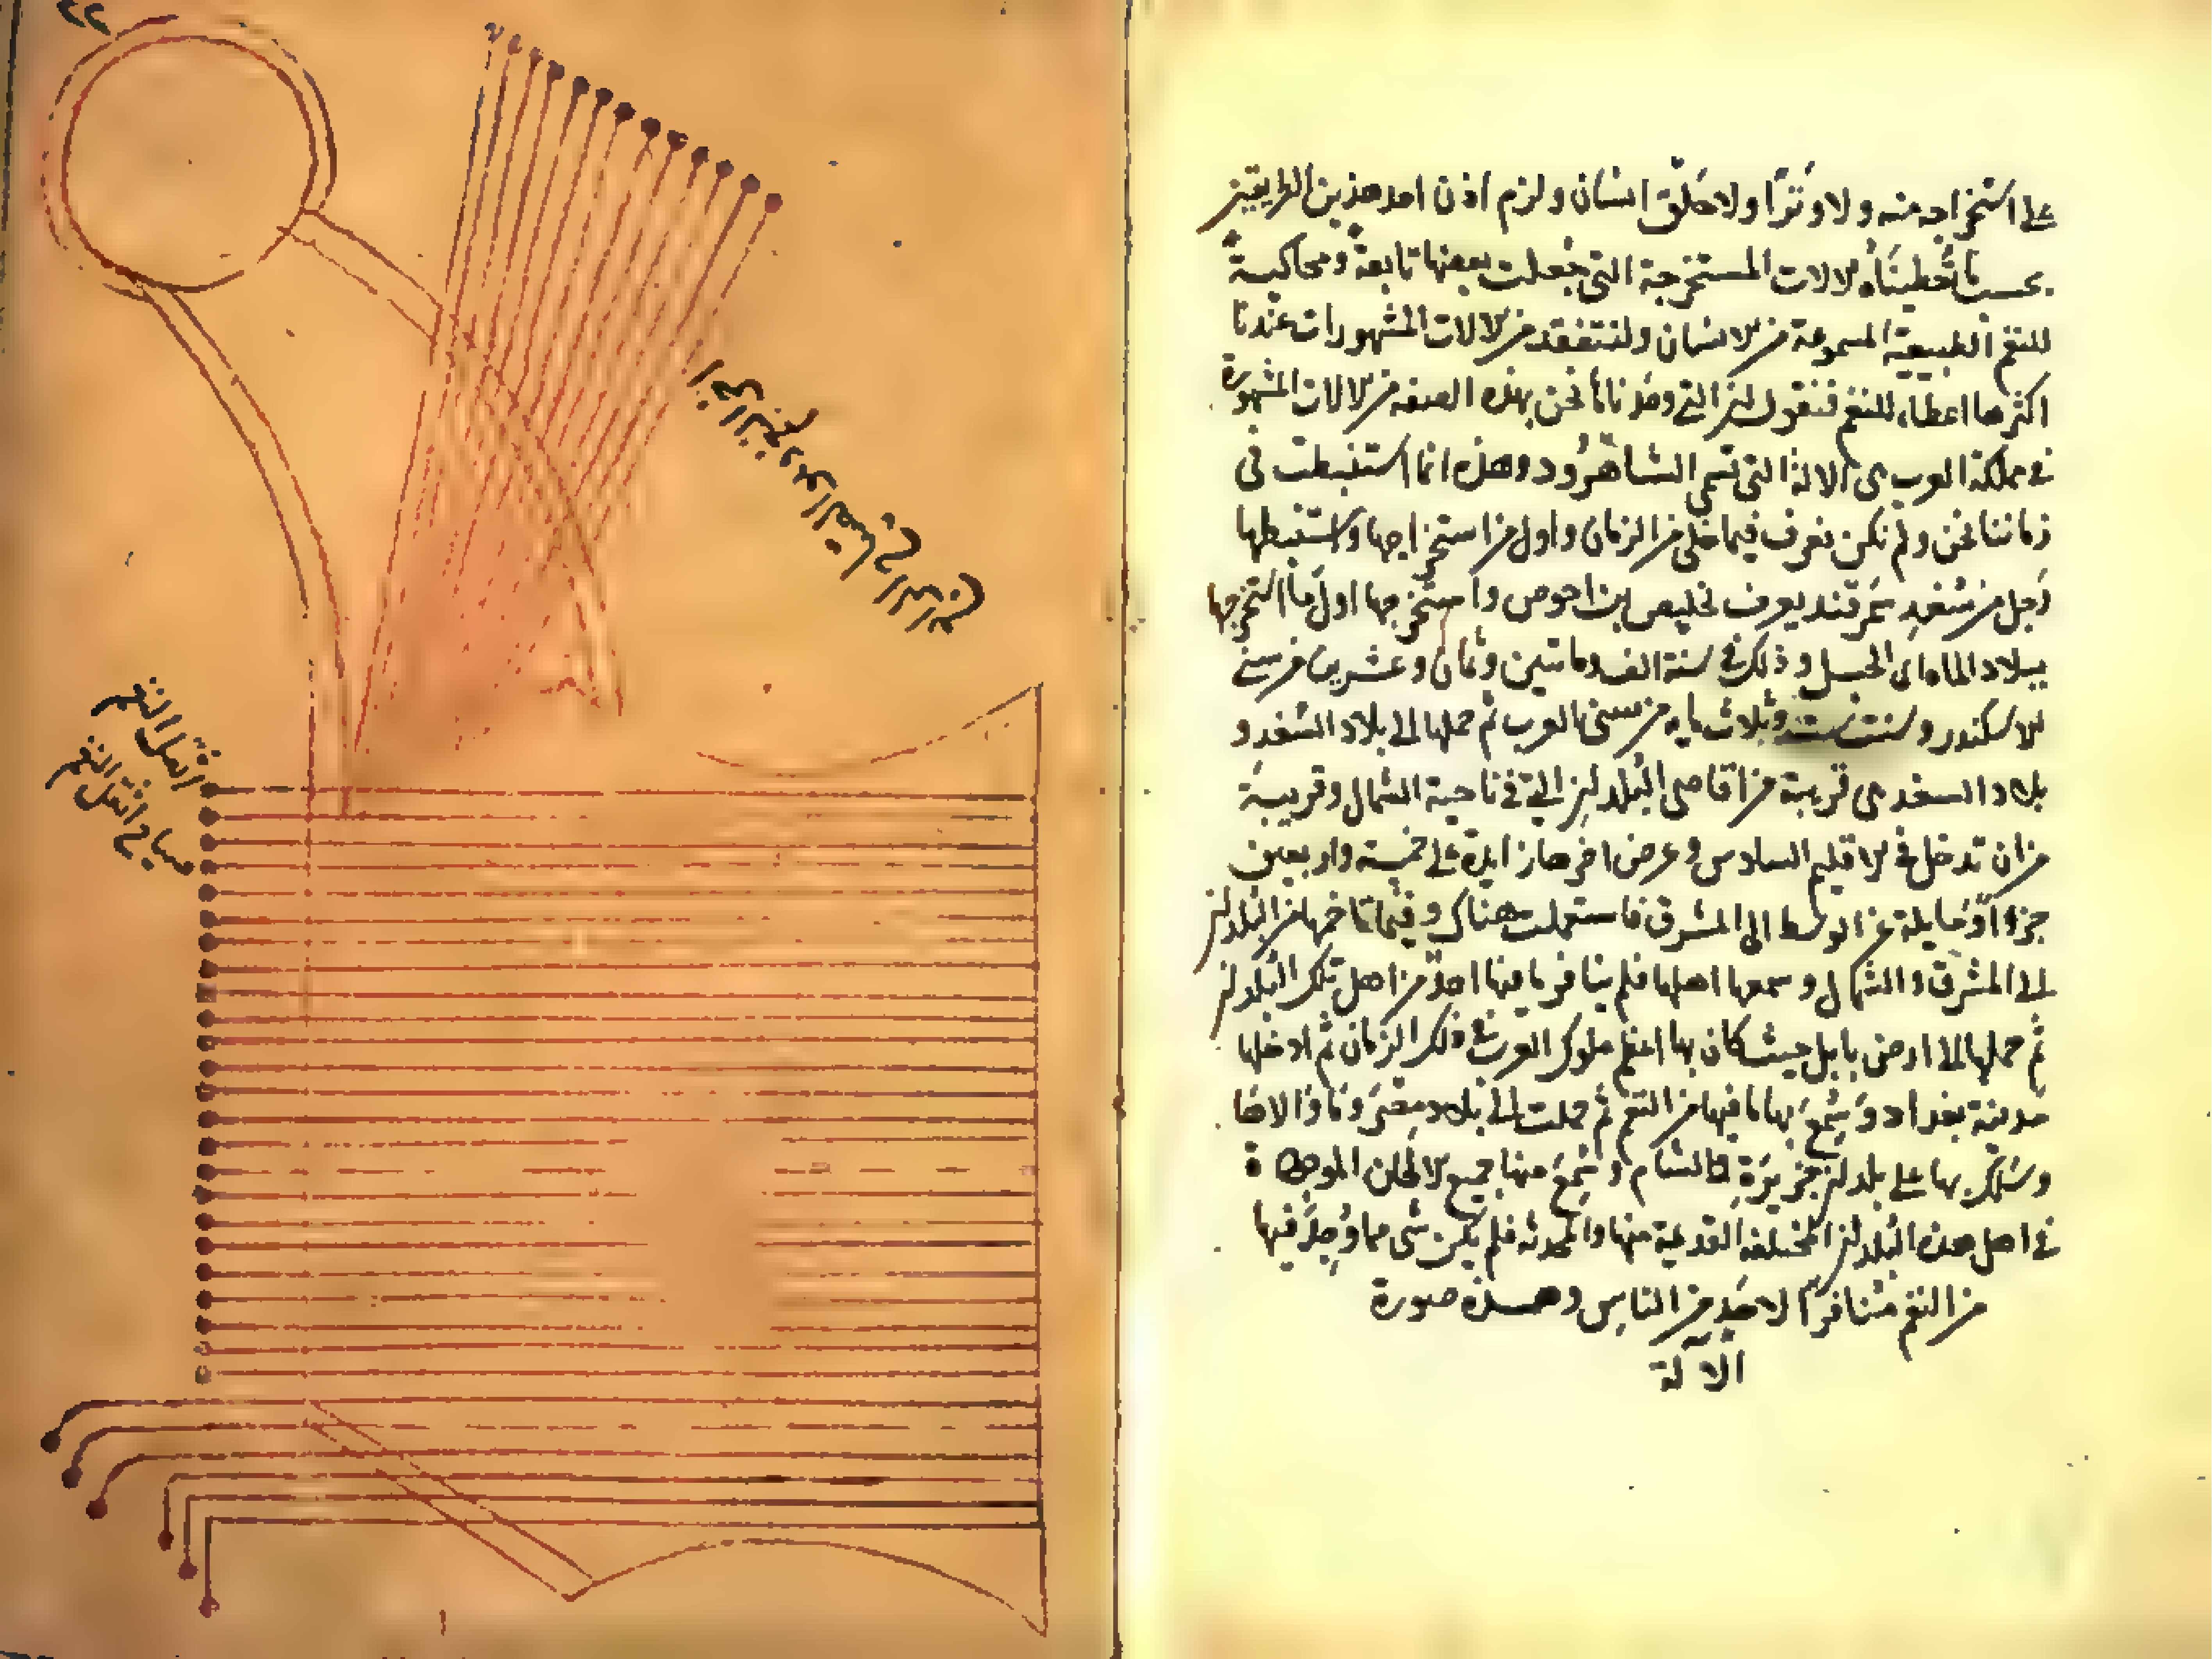 على استخراجه منه ولا وترًا ولا حلق انسان ولزم اذن احد هذين الطريقين
بحسب تخطيناه الالات المستخرجة التي جعلت بعضها تابعة ومحاكية
للنغم الطبيعية المسموعة من الانسان ولنتفقد من الالات المشهورات عندنا
اكثرها اعطاء للنغم فنقول ان التي وجدناها نحن بهذه الصفة من الالات المشهورة
في مملكة العرب هى الالة التي تسمى الشاهرُود وهذه انما استنبطت فى
زماننا نحن ولم تكن تعرف فيما خلى من الزمان واول من استخراجها واستنبطها
رجل من سُغدِ سَمَرقند يعرف بخليص بن احوص واستخرجها اول ما استخرجها
ببلاد الماه اى الجبل وذلك فى سنة الف ومائتين وثمان وعشرين من سنى
الاسكندر وسنت ست وثلاث مايه من سنى العرب ثم حملها الى بلاد السُغد و
بلاد السغد هى قريبة من اقاصى البُلدان التى فى ناحية الشمال وقريبة
من ان تدخل في الاقليم السادس وعرض اخرها زايد على خمسة واربعين
جزءًا ومايلة عن الوسط الى المشرق فاستعملت هناك وفيما تاخمها من البلدان
الى المشرق والشمال وسمعها اهلها فلم ينافر ما فيها احدٌ من اهل تلك البلدان
ثم حملها الى ارض بابل حيث كان بها اعظم ملوك العرب فى ذلك الزمان ثم ادخلها
مدينة بغداد وسُمِعَ بها ما فيها من النغم ثم حملت الى بلاد مصرَ وما والاها
وسُلِكَ بها على بلدان جزيرَةِ والشام وسُمِعَ منها جميع الالحان الموجودة
فى اهل هذه البلدان المختلفة القديمة منها والمحدثه فلم يكن شى مما وُجِدَ فيها
من النغم متنافرًا لاحدٍ من الناس وهــذه صورة
الآلة
٢٢
اثقل النغم
صياح اثقل النغم